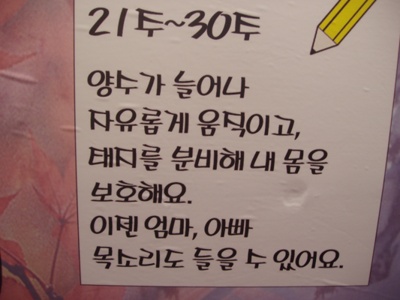 21주~30주
양수가 늘어나
자유롭게 움직이고,
태지를 분비해 내 몸을
보호해요.
이젠 엄마, 아빠
목소리도 들을 수 있어요.